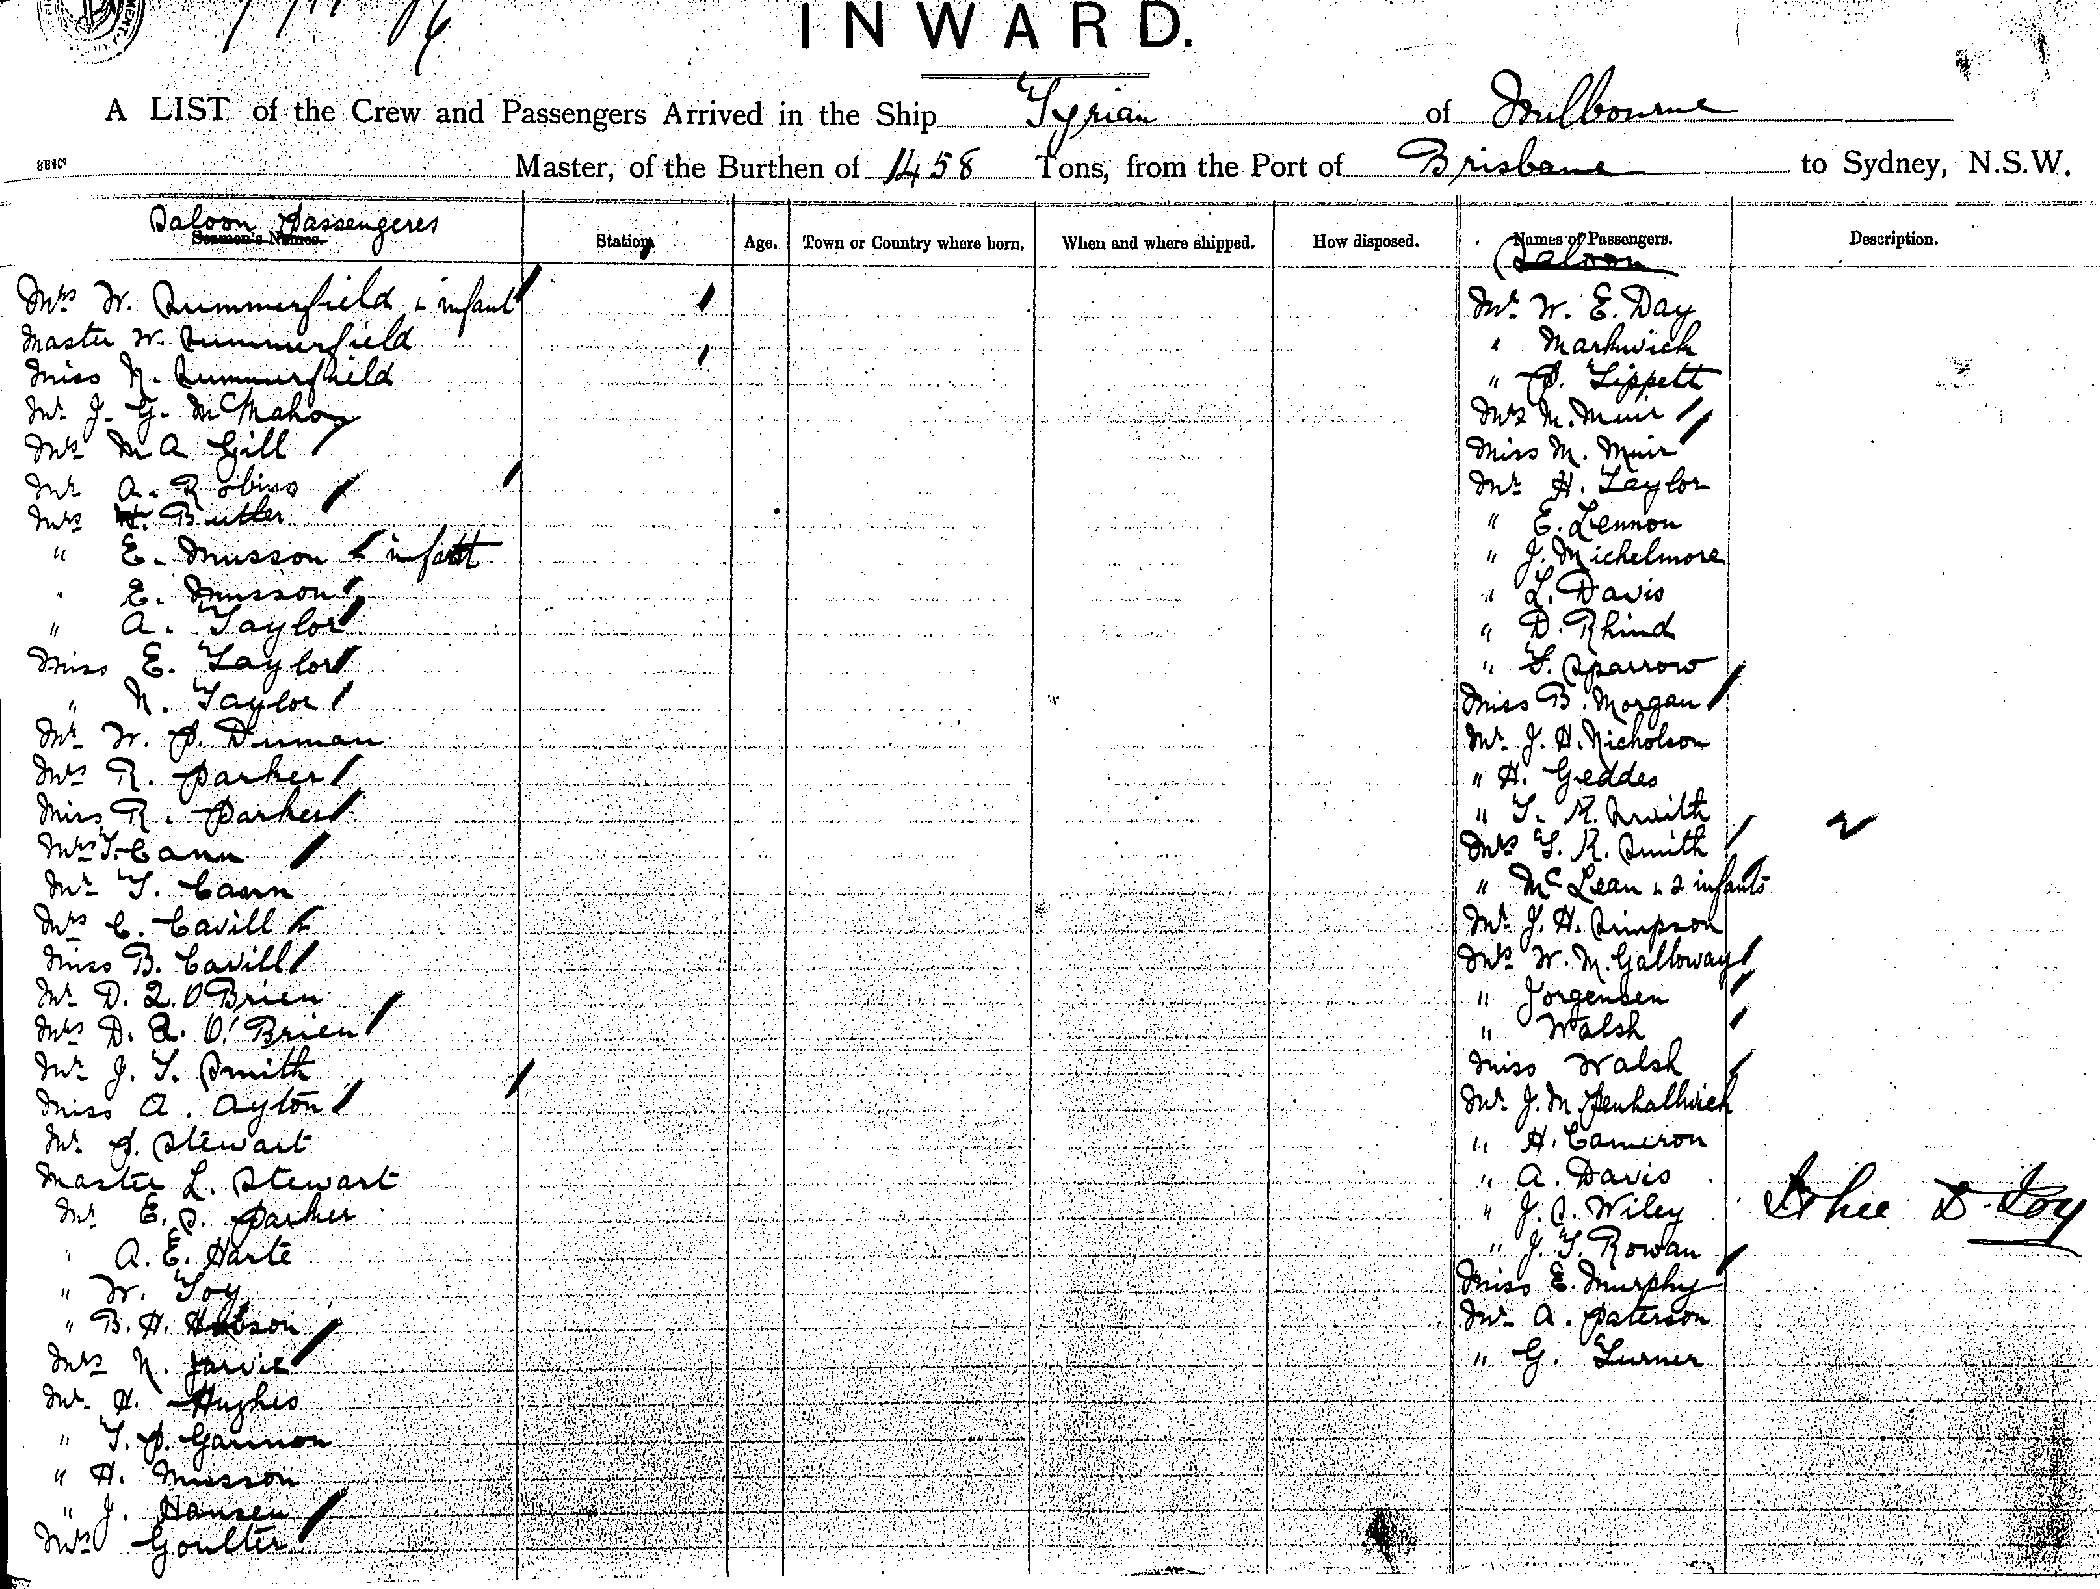 INWARD.
A LIST of the Crew and Passengers Arrived in the Ship Tyrian of Melbourne
Master, of the Burthen of 1458 Tons, from the Port of Brisbane to Sydney, N.S.W.
Saloon Passengeres
Seamen's Names.
Station.
Age.
Town or Country where born.
When and where shipped.
How disposed.
Names of Passengers.
Description.
Saloon
Mrs W. Summerfield & infant
Master W. Summerfield
Miss N. Summerfield
Mr J. G. McMahon
Mr M A Gill
Mr A. Robins
Mrs H. Butler
" E. Musson & infant
" E. Musson
" A. Taylor
Miss E. Taylor
" N. Taylor
Mr W. P. Dunman
Mrs R. Parker
Miss R. Parker
Mrs T. Cann
Mr T. Cann
Mrs C. Cavill
Miss B. Cavill
Mr D. Q. O'Brien
Mrs D. Q. O'Brien
Mr J. T. Smith
Miss A. Ayton
Mr P. Stewart
Master L. Stewart
Mr E. S. Parker
" A. E. Harte
" W. Toy
" B. H. Hobson
Mrs N. Jarvie
Mr H. Hughes
" T. P. Gannon
" H. Musson
" J. Hansen
Mrs Goulter
Mr W. E. Day
" Markwick
" P. Tippett
Mrs M. Muir
Miss M. Muir
Mr H. Taylor
" E. Lennon
" J. Michelmore
" L. Davis
" D. Rhind
" T. Sparrow
Miss B. Morgan
Mr J. H. Nicholson
" H. Geddes
" T. R. Smith
Mrs T. R. Smith
" McLean & 2 infants
Mr J. H. Simpson
Mrs W. M. Galloway
" Jorgensen
" Walsh
Miss Walsh
Mr J. M. Penhallurick
" H. Cameron
" A. Davis
" J. S. Wiley
" J. T. Rowan
Miss E. Murphy
Mr A. Paterson
" G. Turner